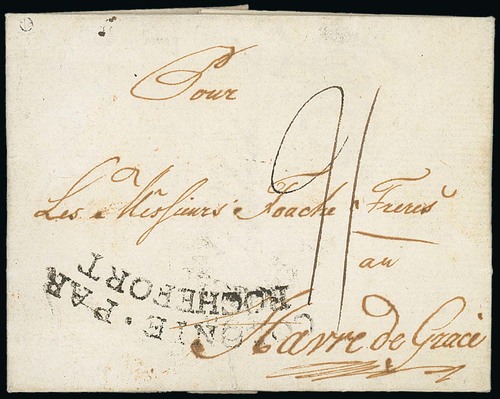 Pour
Les Messieurs Foache Freres
au
Havre de Grace
COLONIE . PAR
ROCHEFORT